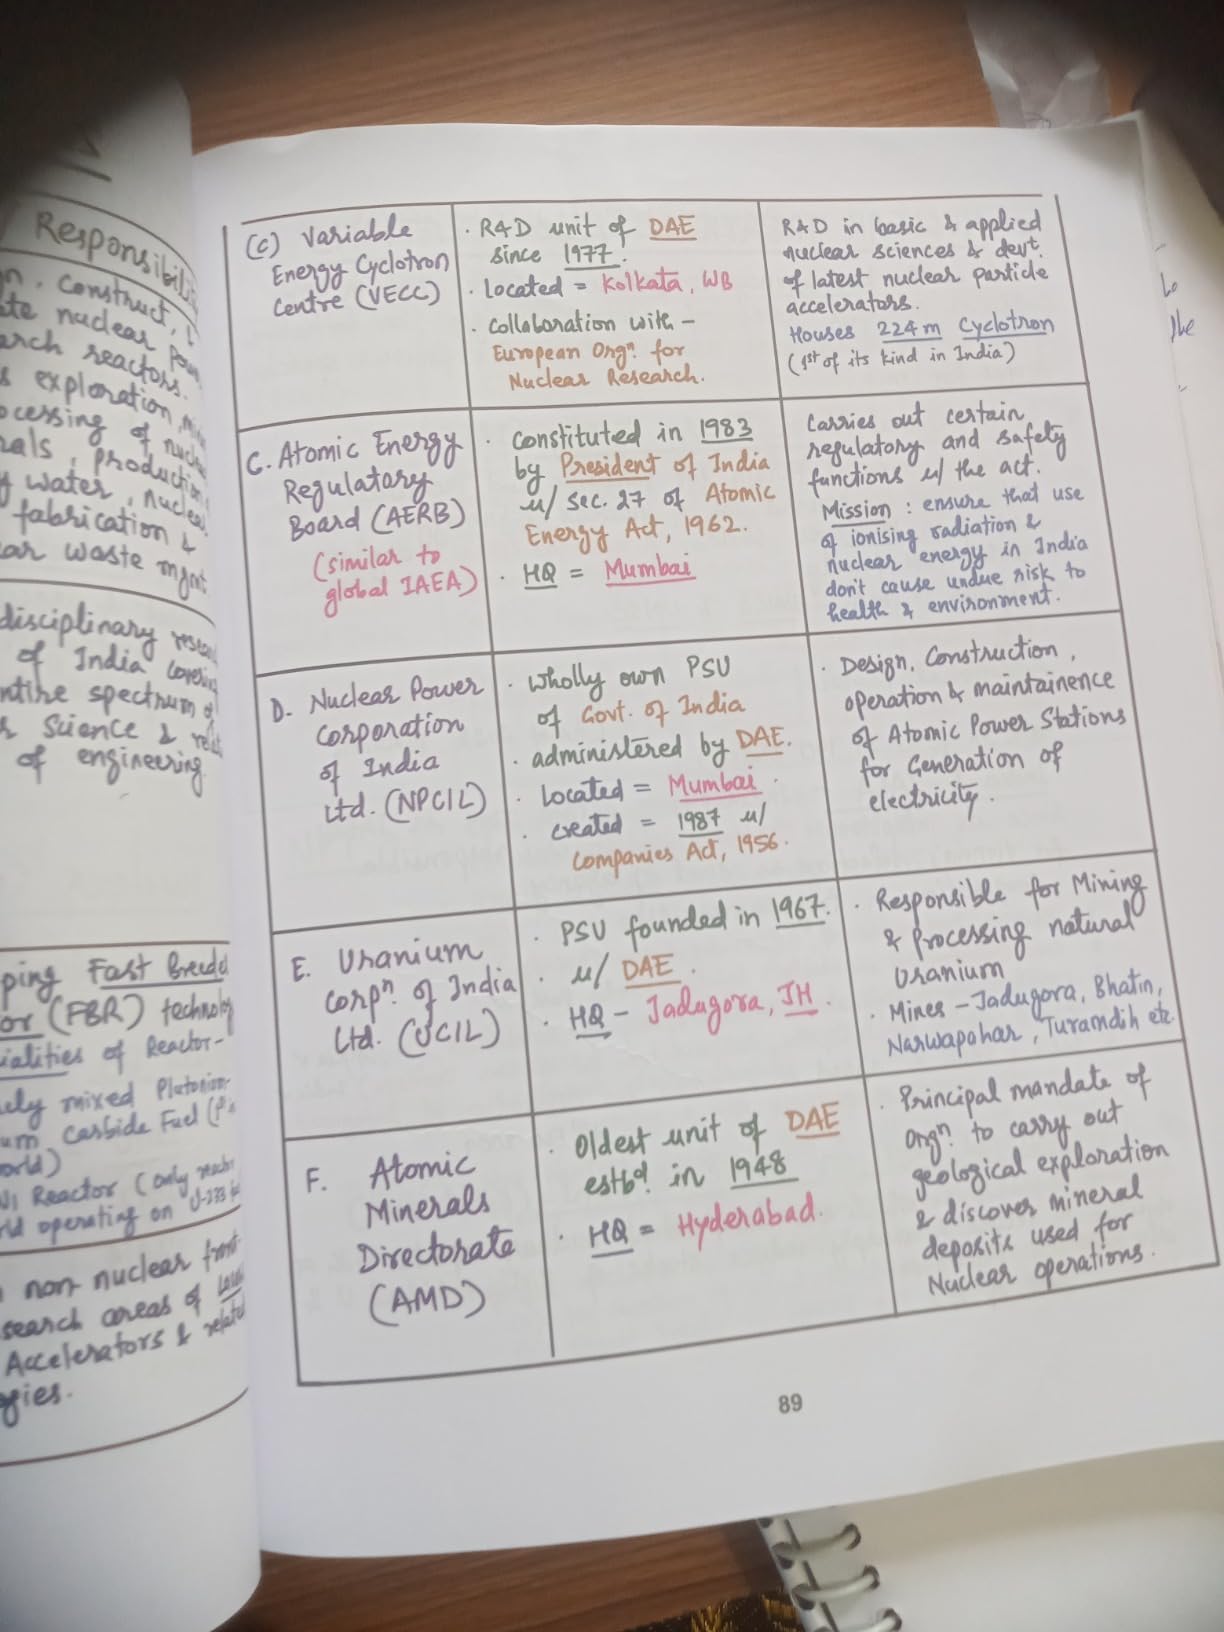 Responsibili
n, Construct,
te nuclear Pow
arch reactors.
s exploration, mi
ocessing of nucle
rals, production
y water, nuclear
fabrication &
ar waste mgmt
disciplinary resea
of India covering
ntire spectrum of
r Science & rela
of engineering
ping Fast Breede
or (FBR) technolog
ialities of Reactor-
uely mixed Plutonium-
um Carbide Fuel (1st
orld)
Ni Reactor (only react
rld operating on U-233
non nuclear front
search areas of Laser
Accelerators & relate
gies.
(C) Variable
Energy Cyclotron
Centre (VECC)
· R&D unit of DAE
since 1977.
· Located = Kolkata, WB
· Collaboration with -
European Orgn. for
Nuclear Research.
R&D in basic & applied
nuclear sciences & devt.
of latest nuclear particle
accelerators.
Houses 224 m Cyclotron
(1st of its kind in India)
C. Atomic Energy
Regulatory
Board (AERB)
(similar to
global IAEA)
· Constituted in 1983
by President of India
u/ sec. 27 of Atomic
Energy Act, 1962.
· HQ = Mumbai
Carries out certain
regulatory and safety
functions u/ the act.
Mission : ensure that use
of ionising radiation &
nuclear energy in India
don't cause undue risk to
health & environment.
D. Nuclear Power
Corporation
of India
Ltd. (NPCIL)
· Wholly own PSU
of Govt. of India
· administered by DAE.
· Located = Mumbai.
· created = 1987 u/
Companies Act, 1956.
· Design, Construction,
operation & maintainence
of Atomic Power Stations
for Generation of
electricity.
E. Uranium
Corpn. of India
Ltd. (UCIL)
· PSU founded in 1967.
· u/ DAE.
· HQ - Jadugora, JH.
· Responsible for Mining
& Processing natural
Uranium
· Mines - Jadugora, Bhatin,
Narwapahar, Turamdih etc.
F. Atomic
Minerals
Directorate
(AMD)
· Oldest unit of DAE
estbd. in 1948
· HQ = Hyderabad.
· Principal mandate of
orgn. to carry out
geological exploration
& discover mineral
deposits used for
Nuclear operations.
89